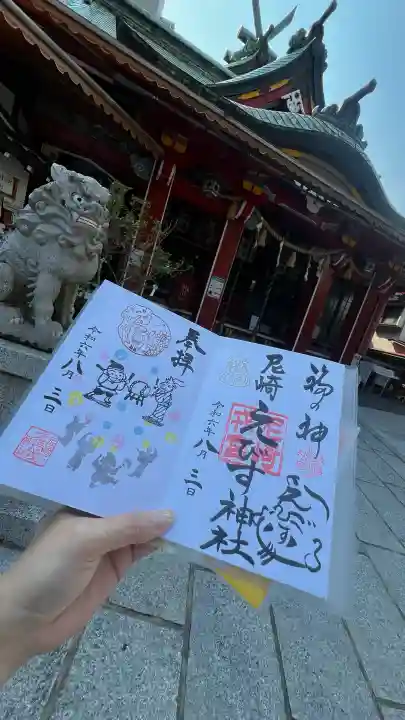 福の神
えびす
尼崎
えびす神社
令和六年八月三日
奉拝
令和六年八月三日